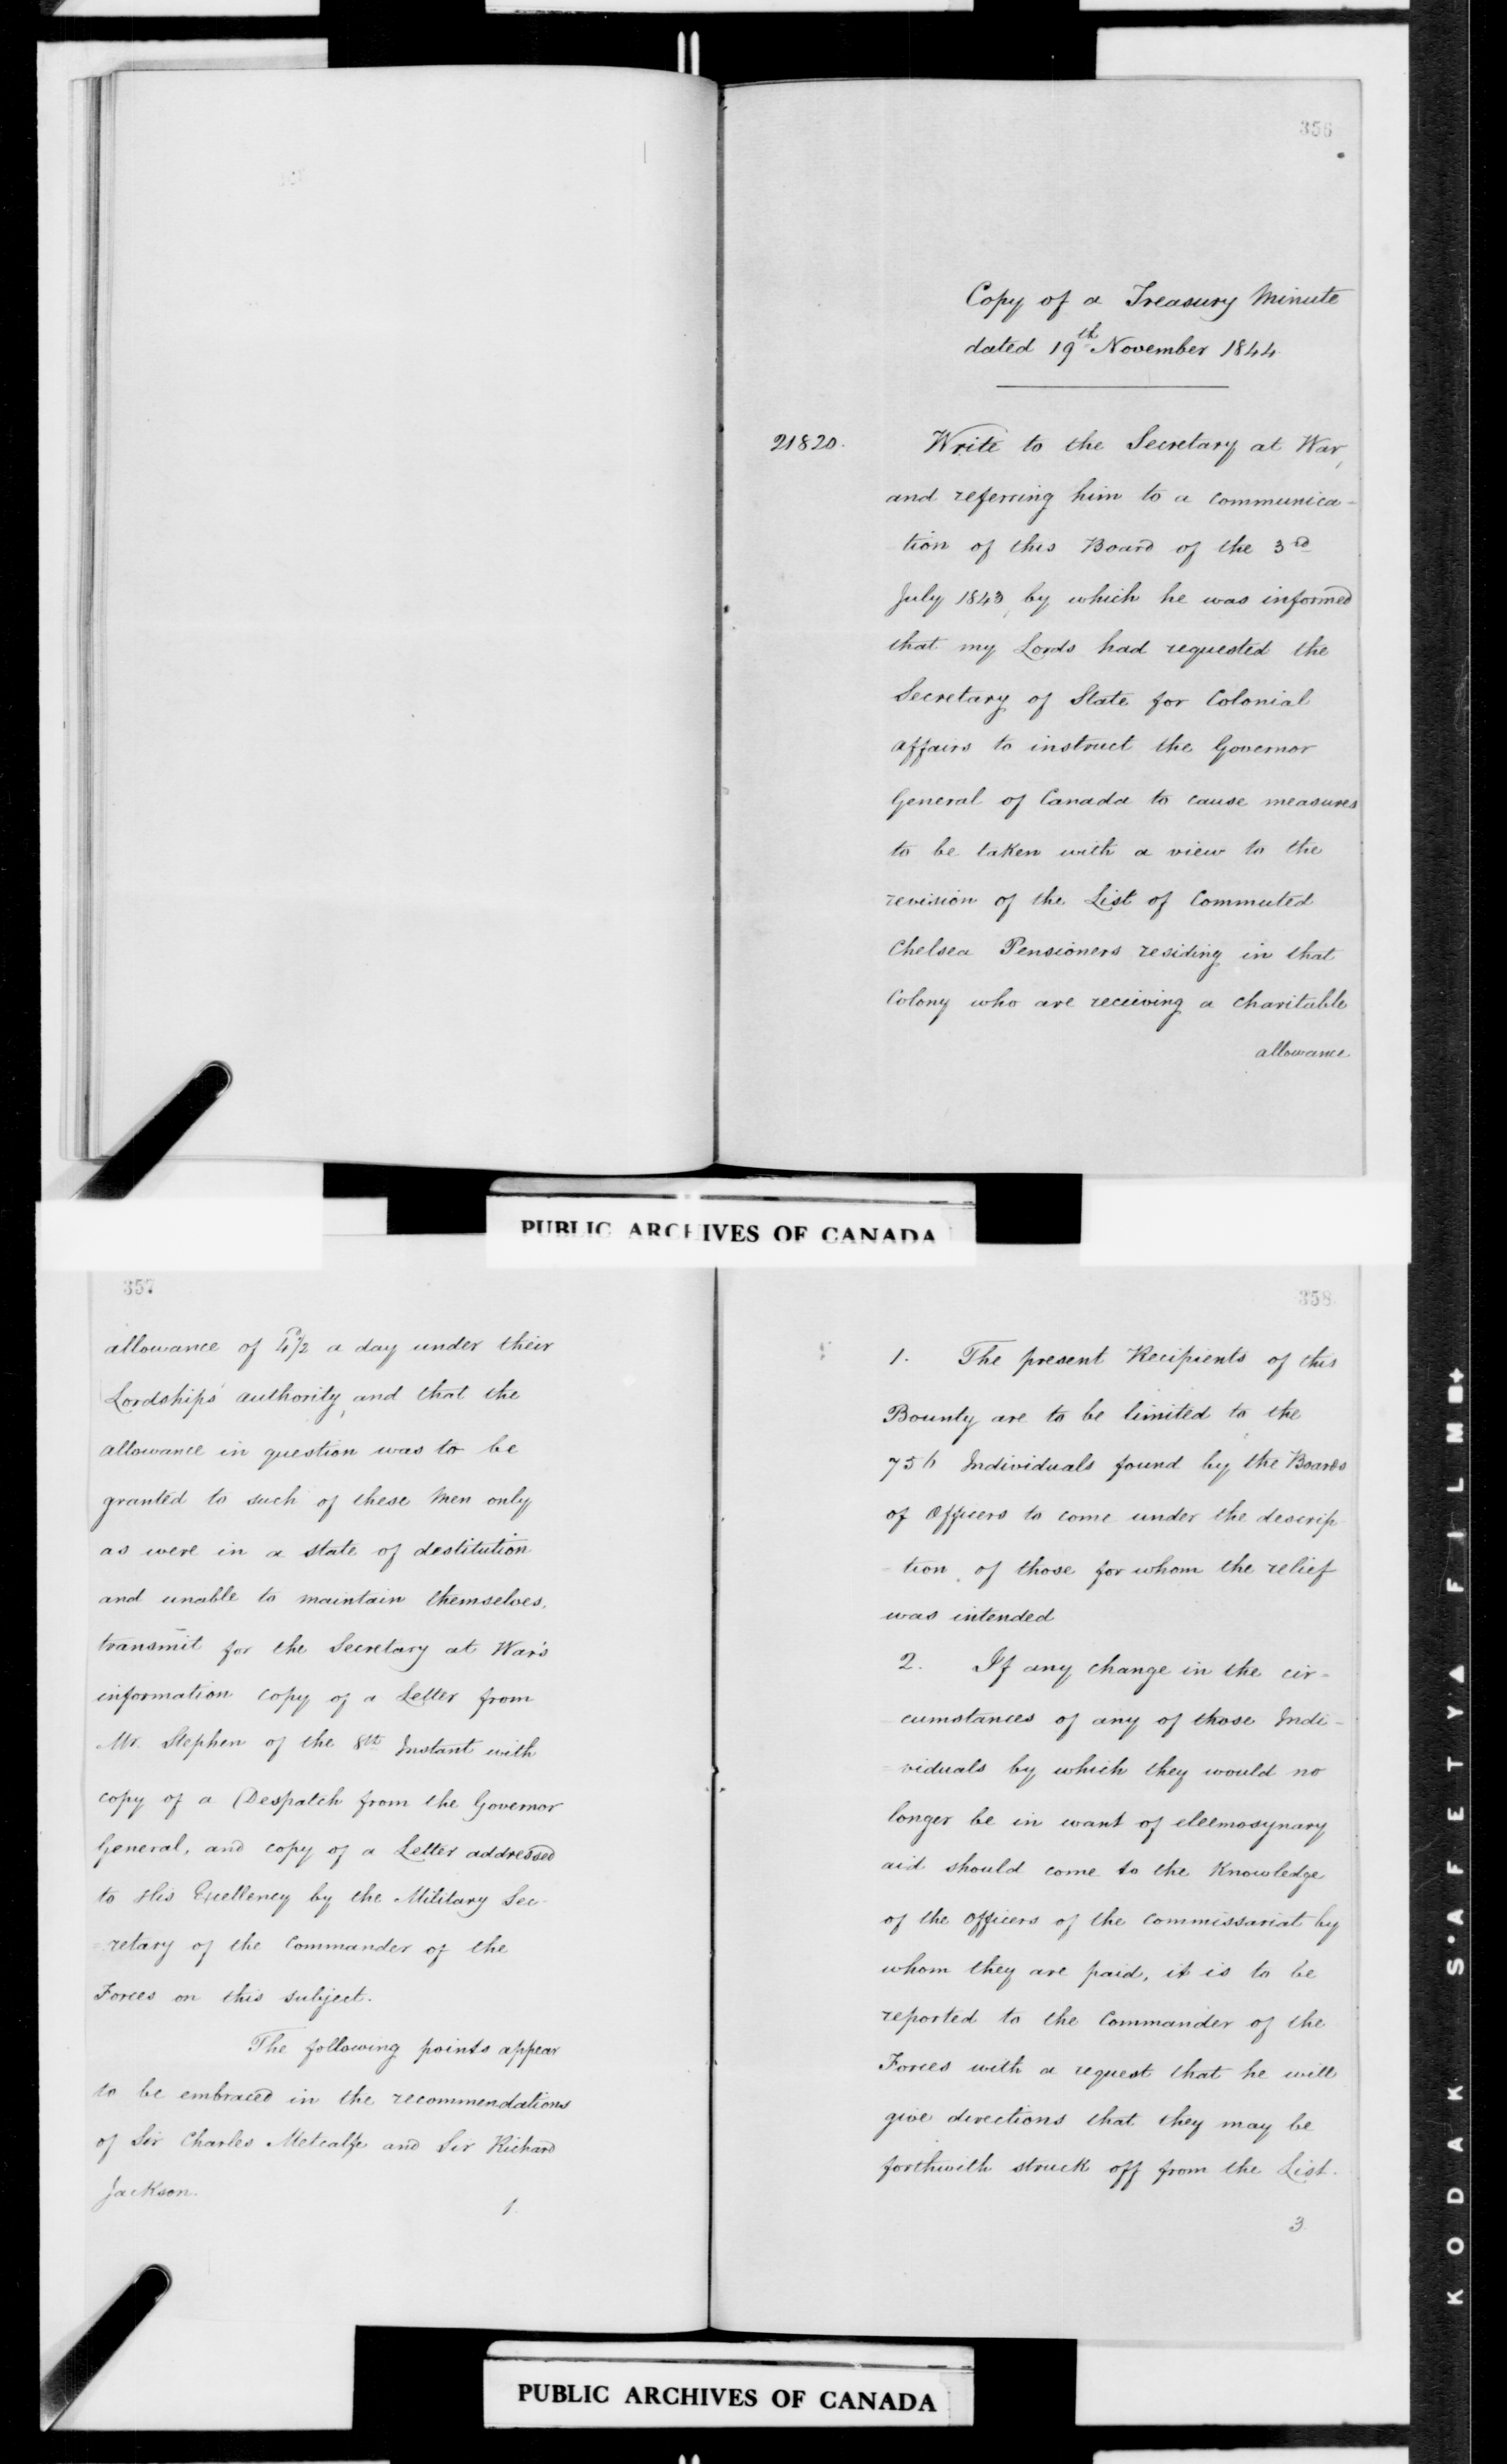 356
Copy of a Treasury Minute
dated 19th November 1844.
21820.
Write to the Secretary at War,
and referring him to a communica-
tion of this Board of the 3rd
July 1843, by which he was informed
that my Lords had requested the
Secretary of State for Colonial
affairs to instruct the Governor
General of Canada to cause measures
to be taken with a view to the
revision of the List of Commuted
Chelsea Pensioners residing in that
Colony who are receiving a charitable
allowance
PUBLIC ARCHIVES OF CANADA
357
allowance of 4½d a day under their
Lordships' authority, and that the
allowance in question was to be
granted to such of these Men only
as were in a state of destitution
and unable to maintain themselves,
transmit for the Secretary at War's
information copy of a Letter from
Mr. Stephen of the 8th Instant with
copy of a Despatch from the Governor
General, and copy of a Letter addressed
to His Excellency by the Military Sec-
-retary of the Commander of the
Forces on this subject.
The following points appear
to be embraced in the recommendations
of Sir Charles Metcalfe and Sir Richard
Jackson.
1.
358
1. The present Recipients of this
Bounty are to be limited to the
756 Individuals found by the Boards
of Officers to come under the descrip-
-tion of those for whom the relief
was intended
2. If any change in the cir-
cumstances of any of those Indi-
-viduals by which they would no
longer be in want of eleemosynary
aid should come to the Knowledge
of the Officers of the Commissariat by
whom they are paid, it is to be
reported to the Commander of the
Forces with a request that he will
give directions that they may be
forthwith struck off from the List.
3.
PUBLIC ARCHIVES OF CANADA
KODAK S·AFETY▲ FILM■+